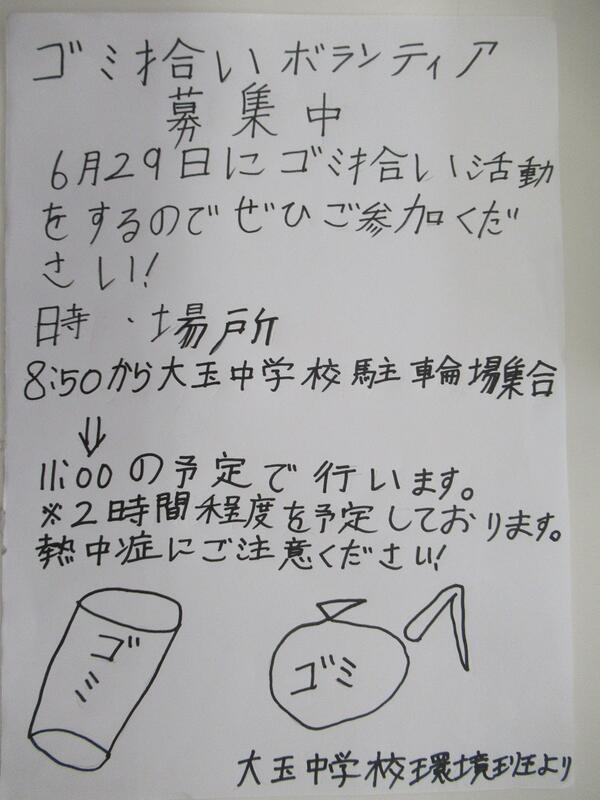 ゴミ拾いボランティア
募集中
6月29日にゴミ拾い活動
をするのでぜひご参加くだ
さい!
日時・場所
8:50から大玉中学校駐輪場集合
⇓
11:00の予定で行います。
※2時間程度を予定しております。
熱中症にご注意ください!
ゴミ
ゴミ
大玉中学校環境班より